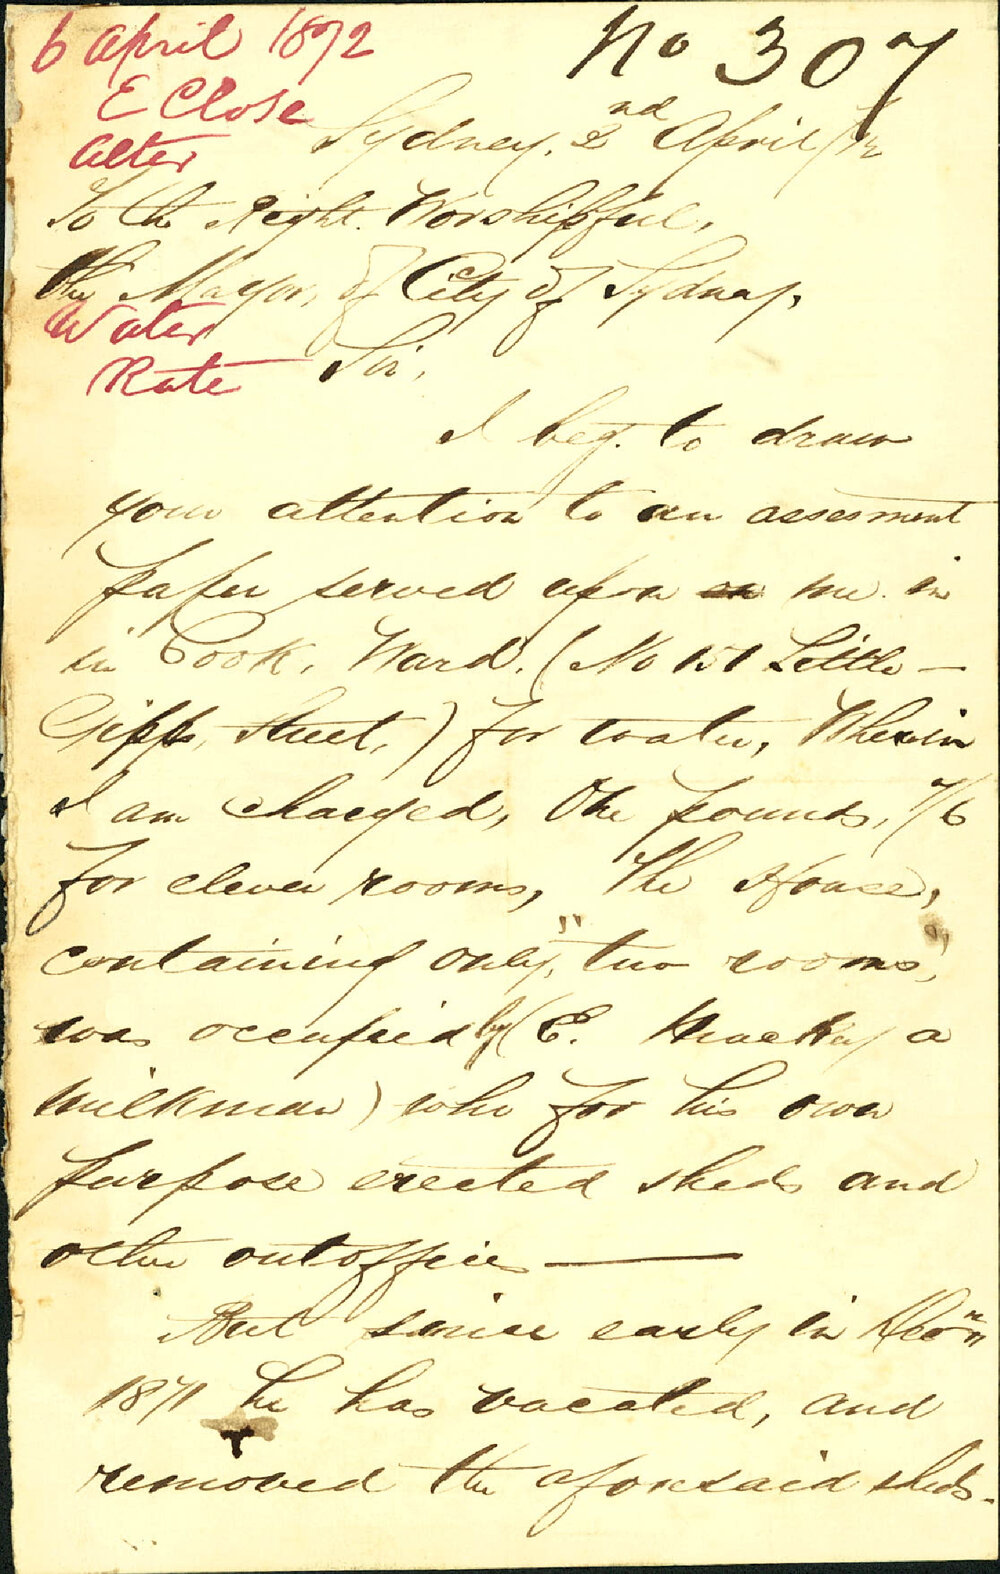 6 April 1872
No 307
E Close
Alter
Sydney. 2nd April /72
To the Right. Worshipful,
the Mayor, of City of Sydney,
Water
Rate
Sir,
I beg. to draw
your attention to an assesment
paper served upon on me. in
in Cook, Ward. (No 151 Little -
Gipps, Street,) for water, Wherein
I am charged, One pounds, 7/6
for eleven rooms, The House,
containing only, "two rooms",
was occupied by (E. Mackay a
milkman) who for his own
purpose erected sheds and
other outoffices —
But since early in Decr
1871 he has vacated, and
removed the aforesaid sheds.